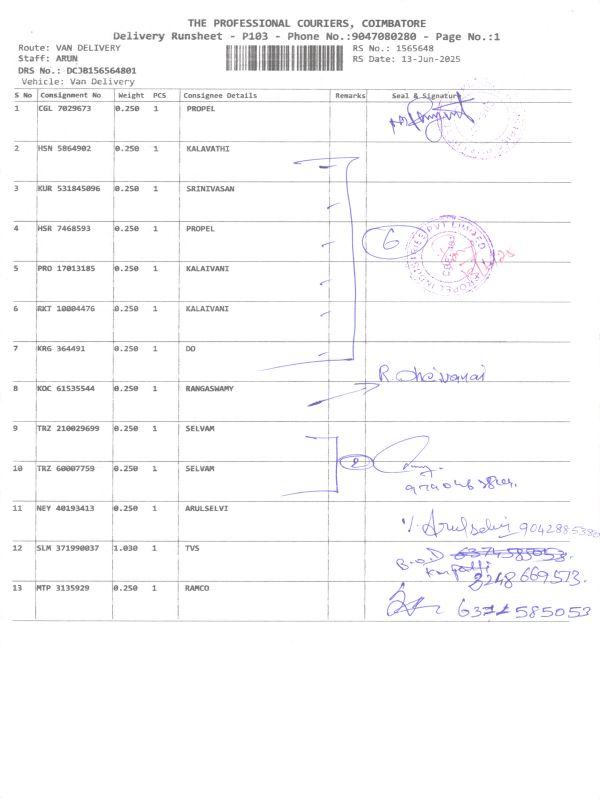 THE PROFESSIONAL COURIERS, COIMBATORE
Delivery Runsheet - P103 - Phone No.:9047080280 - Page No.:1
Route: VAN DELIVERY RS No.: 1565648
Staff: ARUN RS Date: 13-Jun-2025
DRS No.: DCJB156564801
Vehicle: Van Delivery
S No Consignment No Weight PCS Consignee Details Remarks Seal & Signature
1 CGL 7029673 0.250 1 PROPEL
2 HSN 5864902 0.250 1 KALAVATHI
3 KUR 531845096 0.250 1 SRINIVASAN
4 HSR 7468593 0.250 1 PROPEL 6
5 PRO 17013185 0.250 1 KALAIVANI
6 RKT 10004476 0.250 1 KALAIVANI
7 KRG 364491 0.250 1 DD
R. Dheivanai
8 KOC 61535544 0.250 1 RANGASWAMY
9 TRZ 210029699 0.250 1 SELVAM
2
10 TRZ 60007759 0.250 1 SELVAM
11 NEY 40193413 0.250 1 ARULSELVI
Arulselvi 9042885380
12 SLM 371990037 1.030 1 TVS
6374585053
8248669513.
13 MTP 3135929 0.250 1 RAMCO
6374585053